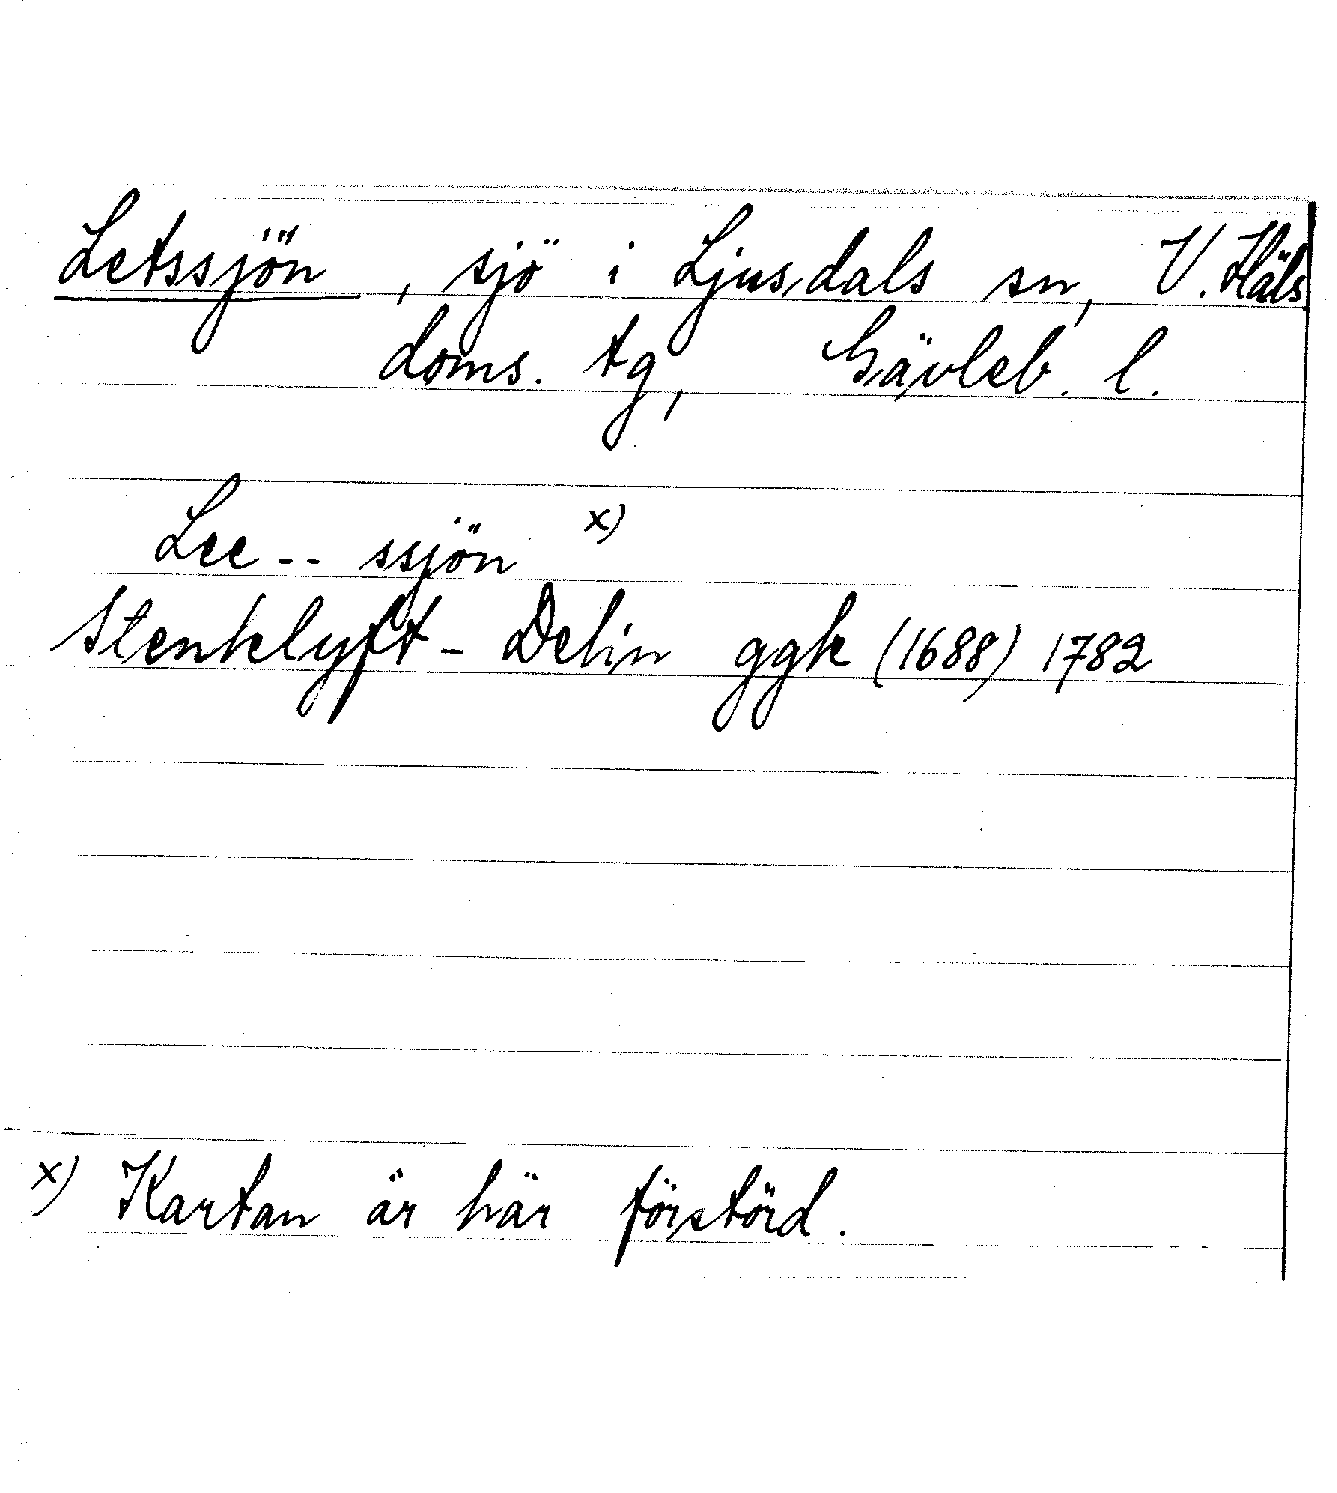 Letssjön, sjö i Ljusdals sn, V. Häls.
doms. tg, Gävleb. l.
Lee -- ssjön x)
Stenklyft - Delin ggk (1688) 1782
x) Kartan är här förstörd.